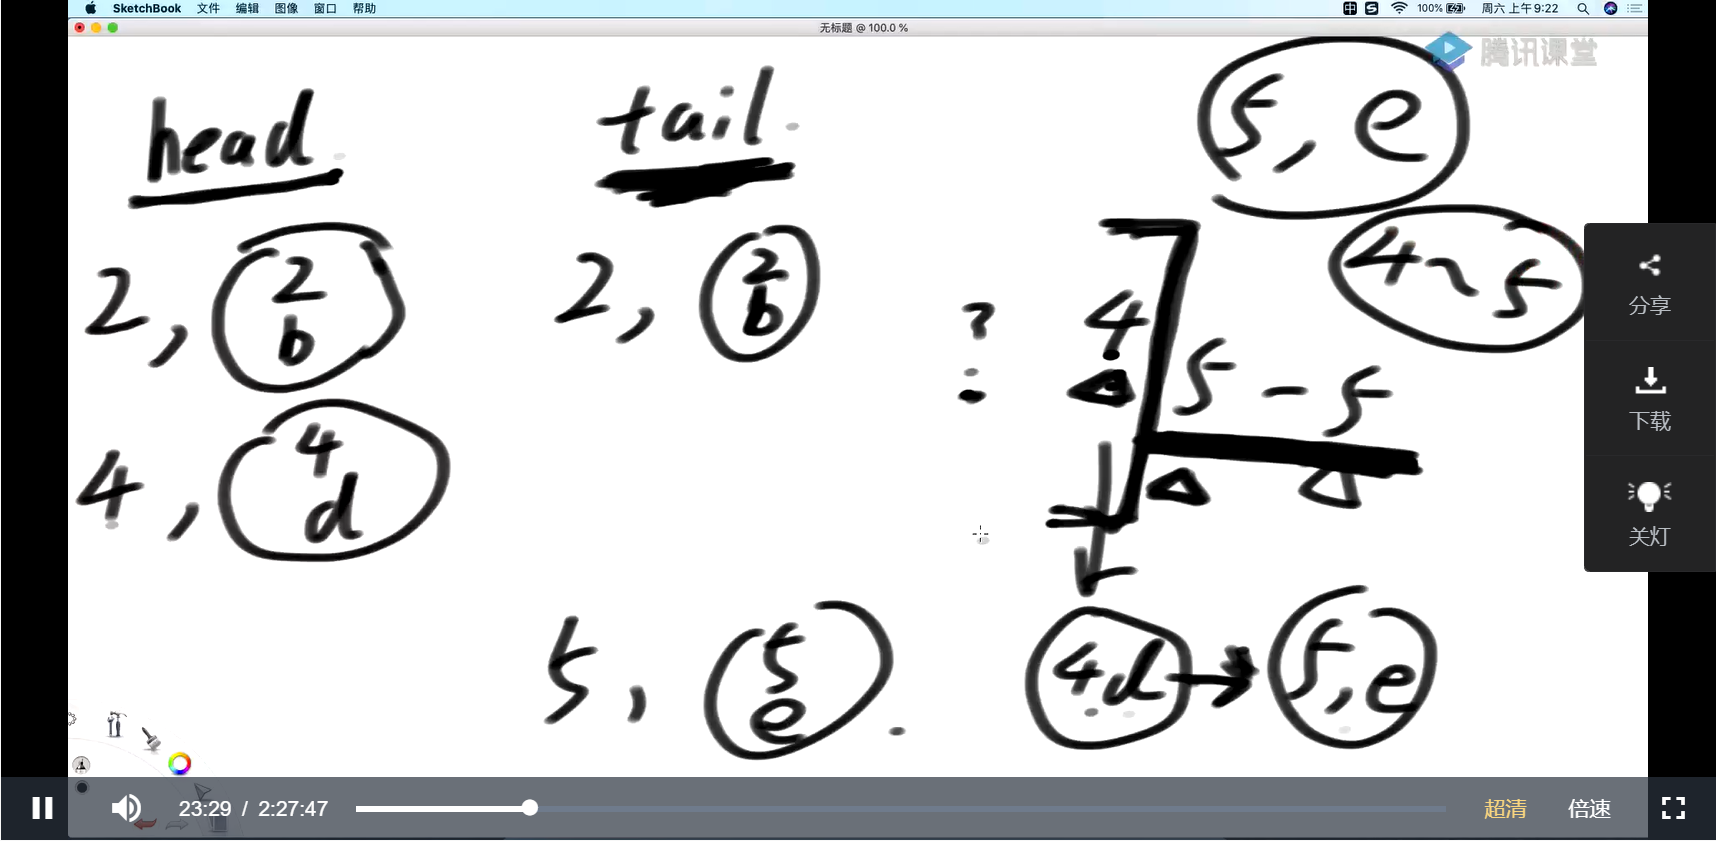 SketchBook 文件 编辑 图像 窗口 帮助 100% 周六 上午9:22
无标题 @ 100.0 %
腾讯课堂
head tail 5, e
2, 2 b 2, 2 b ? 4 4~5
5 - 5
4, 4 d
5, 5 e 4d → 5, e
分享
下载
关灯
23:29 / 2:27:47 超清 倍速